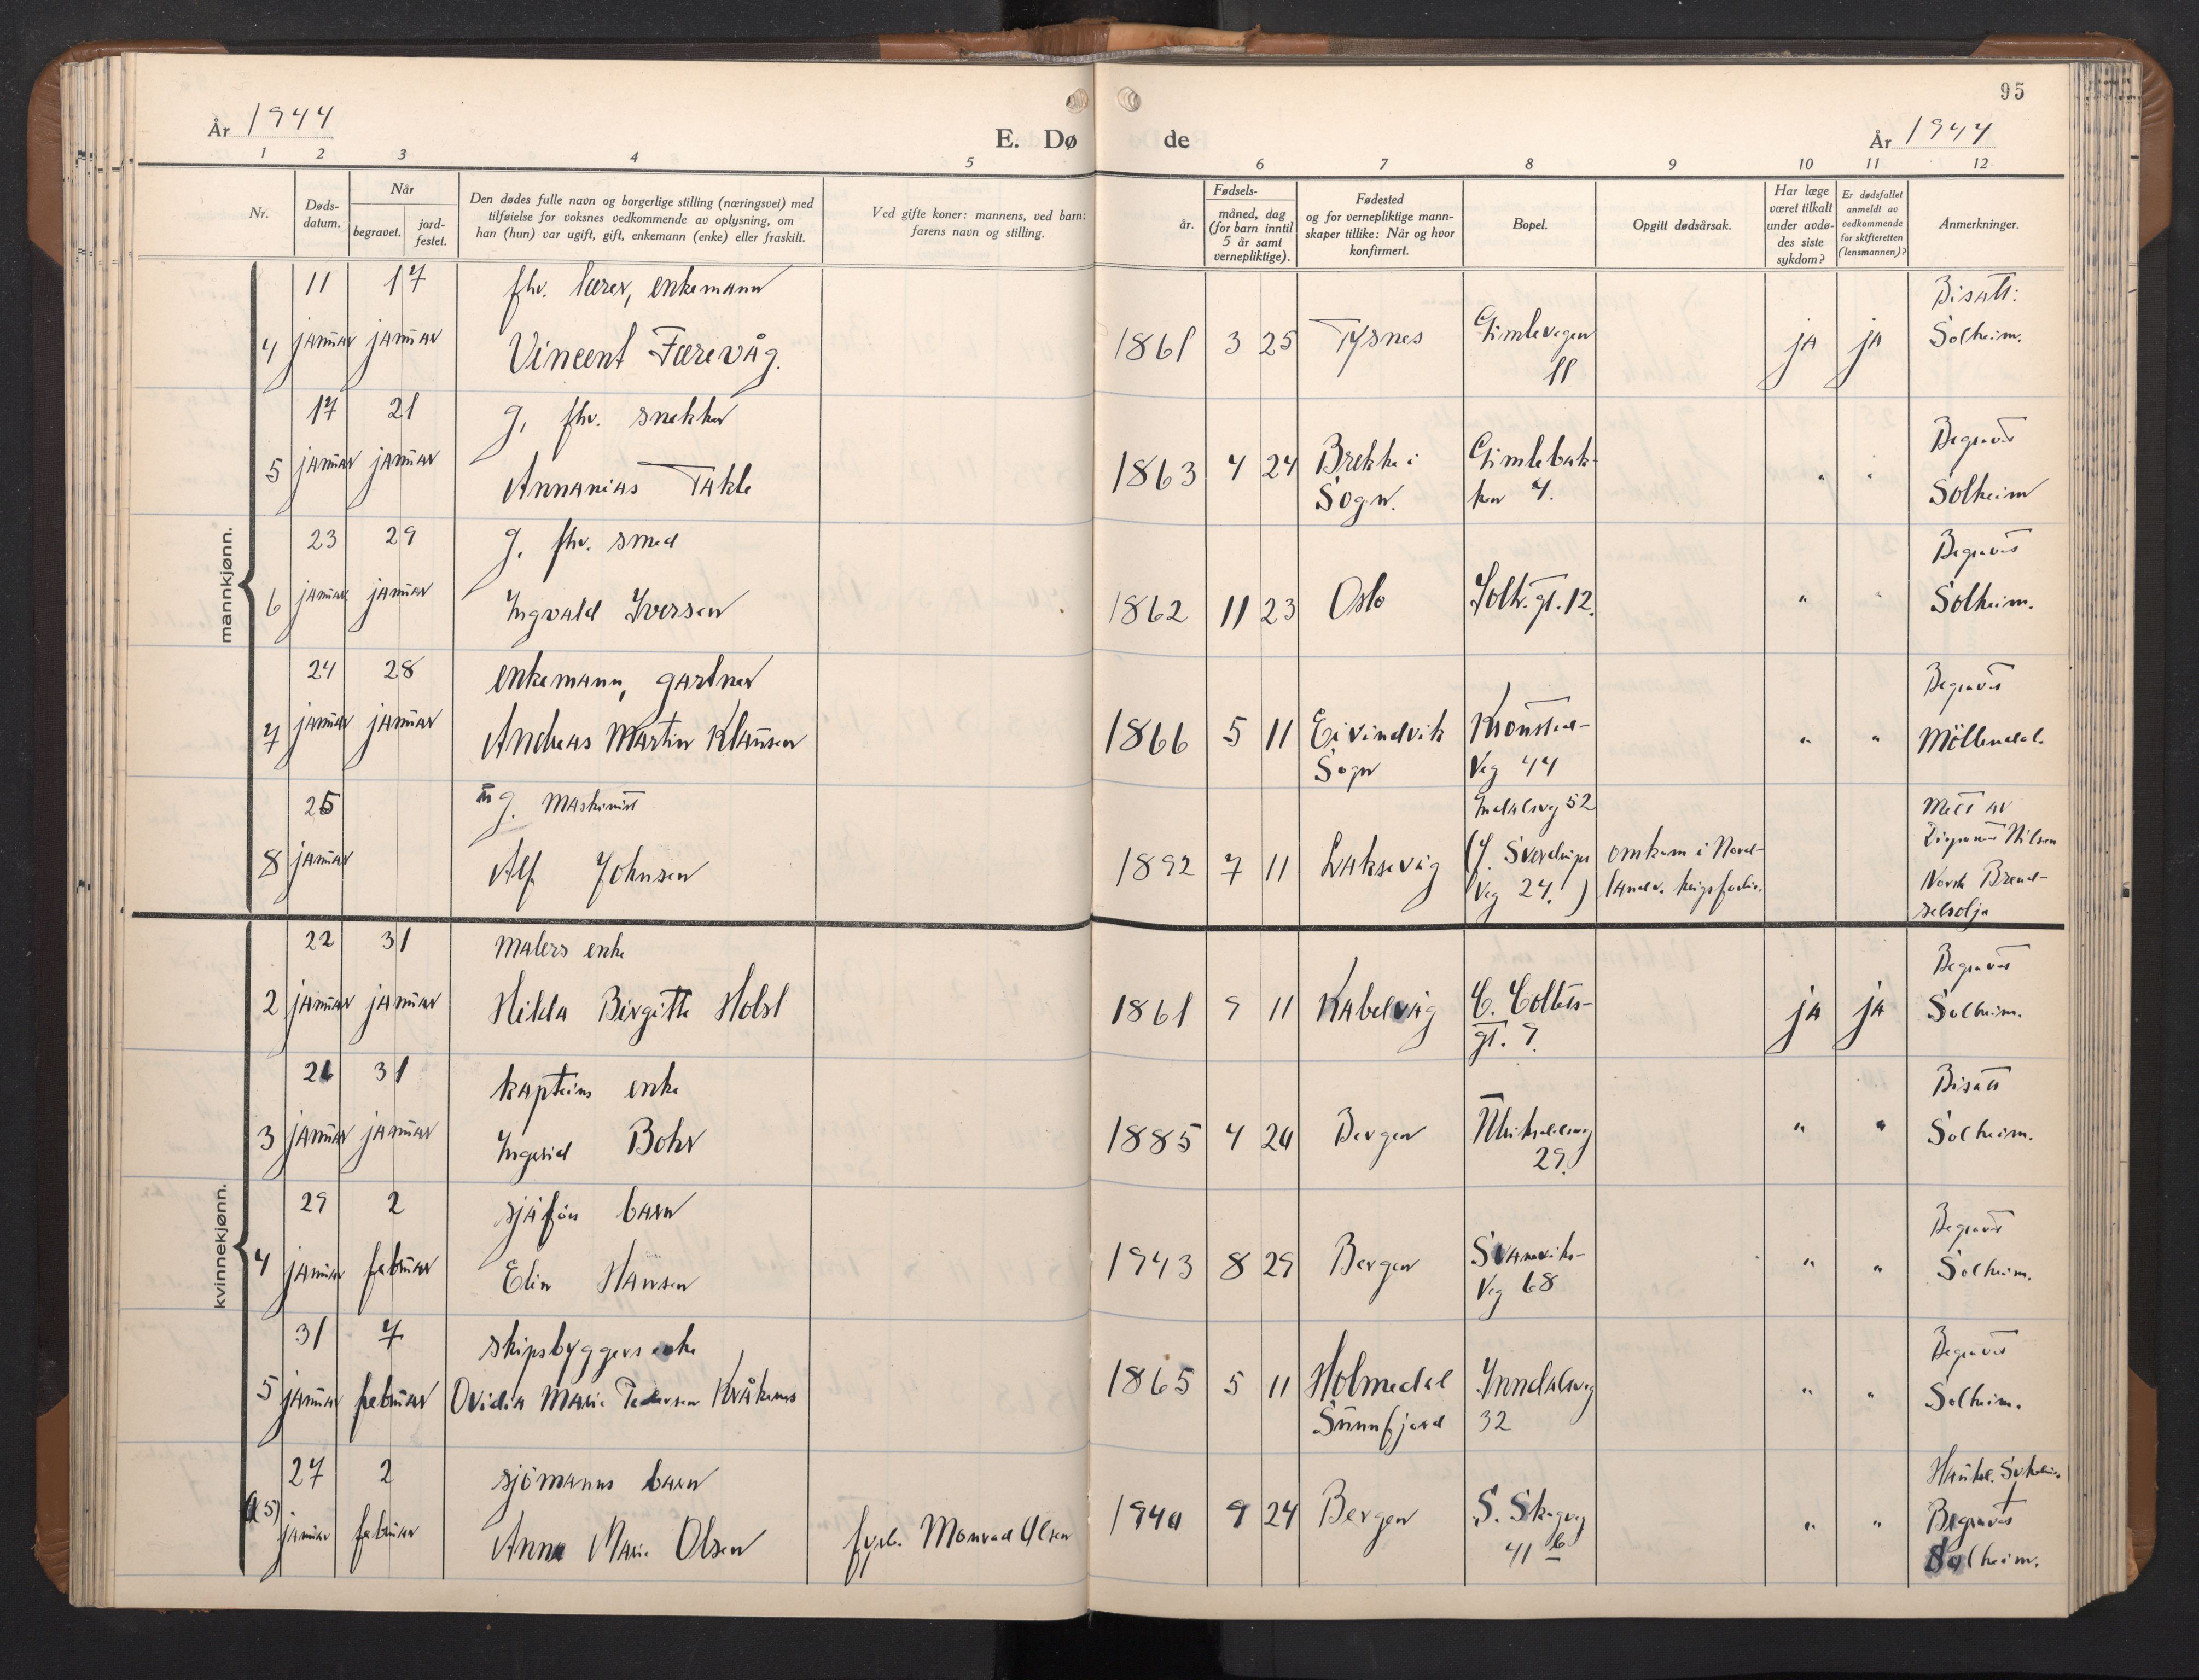 95
År 1944
E. Dø
de
År 1944
1 2 3 4 5 6 7 8 9 10 11 12
Nr.
Døds-
datum.
Når
begravet.
jord-
festet.
Den dødes fulle navn og borgerlige stilling (næringsvei) med
tilføielse for voksnes vedkommende av oplysning, om
han (hun) var ugift, gift, enkemann (enke) eller fraskilt.
Ved gifte koner: mannens, ved barn:
farens navn og stilling.
Fødsels-
år.
måned, dag
(for barn inntil
5 år samt
vernepliktige).
Fødested
og for vernepliktige mann-
skaper tillike: Når og hvor
konfirmert.
Bopel.
Opgitt dødsårsak.
Har læge
været tilkalt
under avdø-
des siste
sykdom?
Er dødsfallet
anmeldt av
vedkommende
for skifteretten
(lensmannen)?
Anmerkninger.
mannkjønn.
11 17 fhv. lærer, enkemann Bisatt:
4 januar januar Vincent Færevåg. 1861 3 25 Tysnes Gimlevegen ja ja Solheim.
11
17 21 g. fhv. snekker Begravet
5 januar januar Annanias Takle 1863 4 24 Brekke i Gimlebak- " "
Sogn. ken 4. Solheim
23 29 g. fhv. smed Begravet
6 januar januar Ingvald Iversen 1862 11 23 Oslo Solh.gt. 12. " " Solheim.
24 28 enkemann, gartner Begravet
7 januar januar Andreas Martin Klausen 1866 5 11 Eivindvik Kronstad- " " Möllendal.
Sogn veg 44
25 ug. maskinist Indalsveg 52 Melt av
8 januar Alf Johnsen 1892 7 11 Laksevåg (J. Sverdrups omkom i Nord- Nilsen
veg 24.) Norsk Brend-
selsolje
kvinnekjønn.
22 31 malers enke Begravet
2 januar januar Hilda Birgitte Holst 1861 9 11 Kabelvåg ja ja Solheim.
gt. 9.
26 31 kapteins enke Bisatt
3 januar januar Ingerid Bohr 1885 4 24 Bergen " " Solheim.
29.
29 2 sjåfórs barn Begravet
4 januar februar Elin Hansen 1943 8 29 Bergen Svaneviks- " " Solheim.
veg 68
31 7 skipsbyggers enke Begravet
5 januar februar Ovidia Marie Pedersen Kråkenes 1865 5 11 Holmedal Inndalsveg " " Solheim.
Sunnfjord 32
27 2 sjömanns barn
januar februar Anna Marie Olsen fyrb. Monrad Olsen 1940 9 24 Bergen S. Skogveg " " Begravet
41 b Solheim.